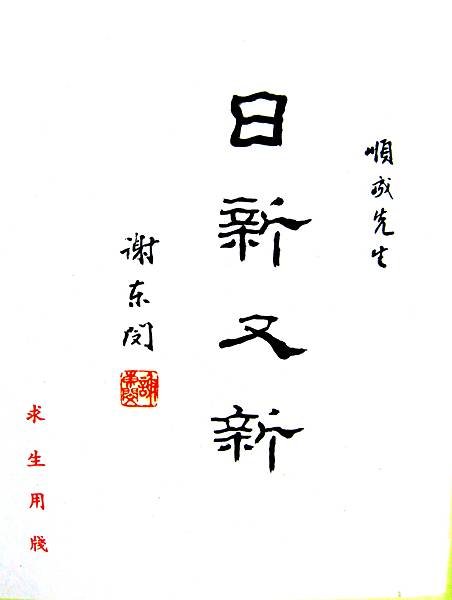 順成先生
日新又新
谢东闵
求生用牋